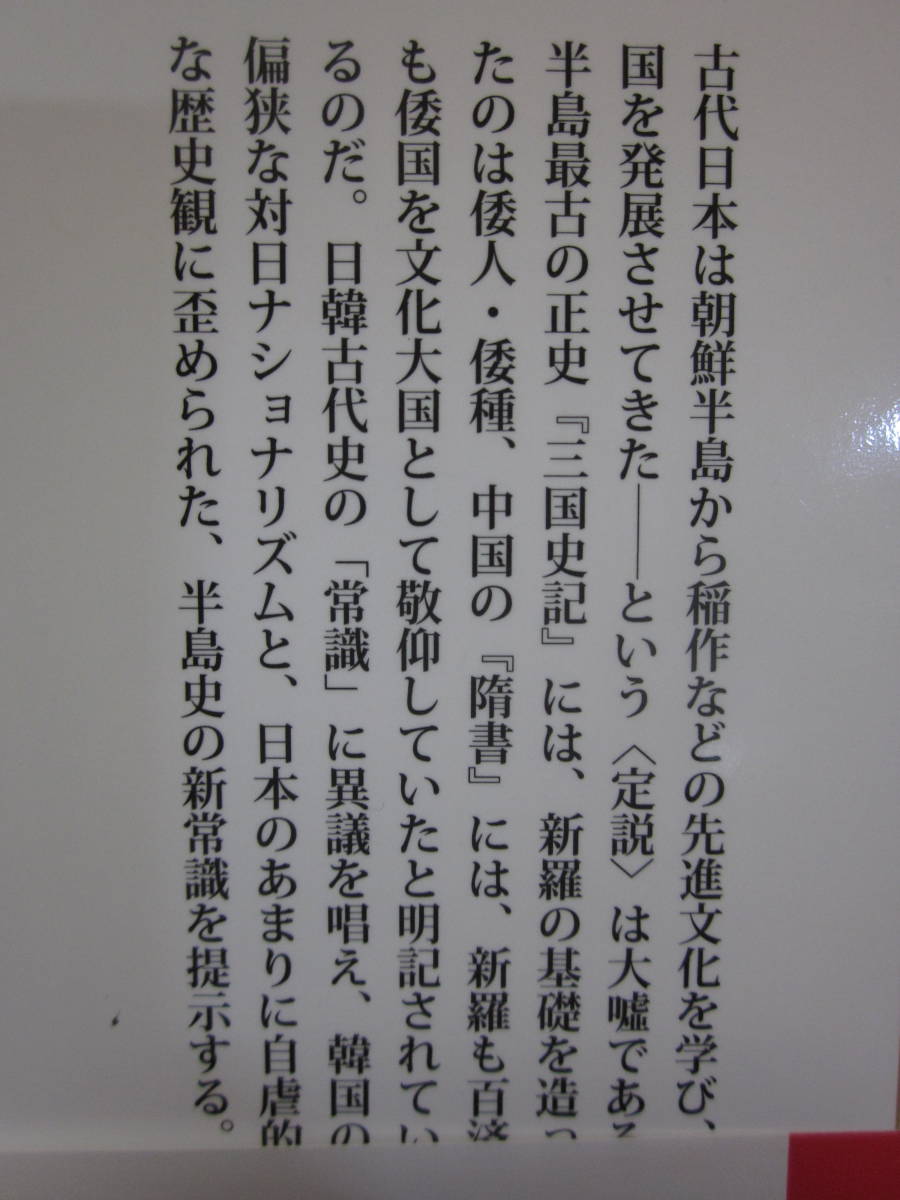 古代日本は朝鮮半島から稲作などの先進文化を学び、
国を発展させてきた——という〈定説〉は大嘘である
半島最古の正史『三国史記』には、新羅の基礎を造っ
たのは倭人・倭種、中国の『隋書』には、新羅も百済
も倭国を文化大国として敬仰していたと明記されてい
るのだ。日韓古代史の「常識」に異議を唱え、韓国の
偏狭な対日ナショナリズムと、日本のあまりに自虐的
な歴史観に歪められた、半島史の新常識を提示する。